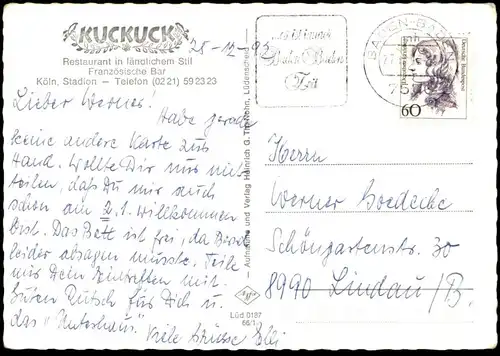 KUCKUCK
Restaurant in ländlichem Stil
Französische Bar
Köln, Stadion – Telefon (02 21) 59 23 23
28-12-92
Lieber Werner. Habe gerade
keine andere Karte zur
Hand. Wollte Dir nur mit-
teilen, daß Du mir auch
schon am 2.1. willkommen
bist. Das Bett ist frei, da
leider absagen musste. Teile
mir Dein Eintreffen mit.
Guten Rutsch für Dich u.
das "Unterhaus". Viele Grüsse
Aufnahme und Verlag Heinrich G. Lüdenscheid
Agfa
Lüd 0187
66/1
Baden-Baden
Zeit
BADEN-BADEN
75
Deutsche Bundespost
60
Herrn
Werner Goedecke
Schöngartenstr. 30
8990 Lindau/B.